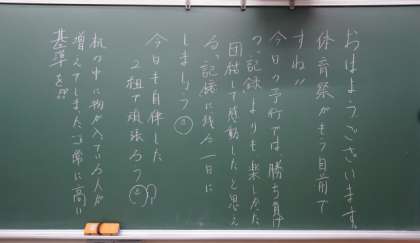 おはようございます。
体育祭がもう目前で
すね!!
今日の予行では勝ち負け
の「記録」よりも楽しかった
団結して感動したと思え
る、記憶に残る一日に
しましょう
今日も自律した
2組で頑張ろう
机の中に物が入っている人が
増えてしまった。非常に高い
基準を!!